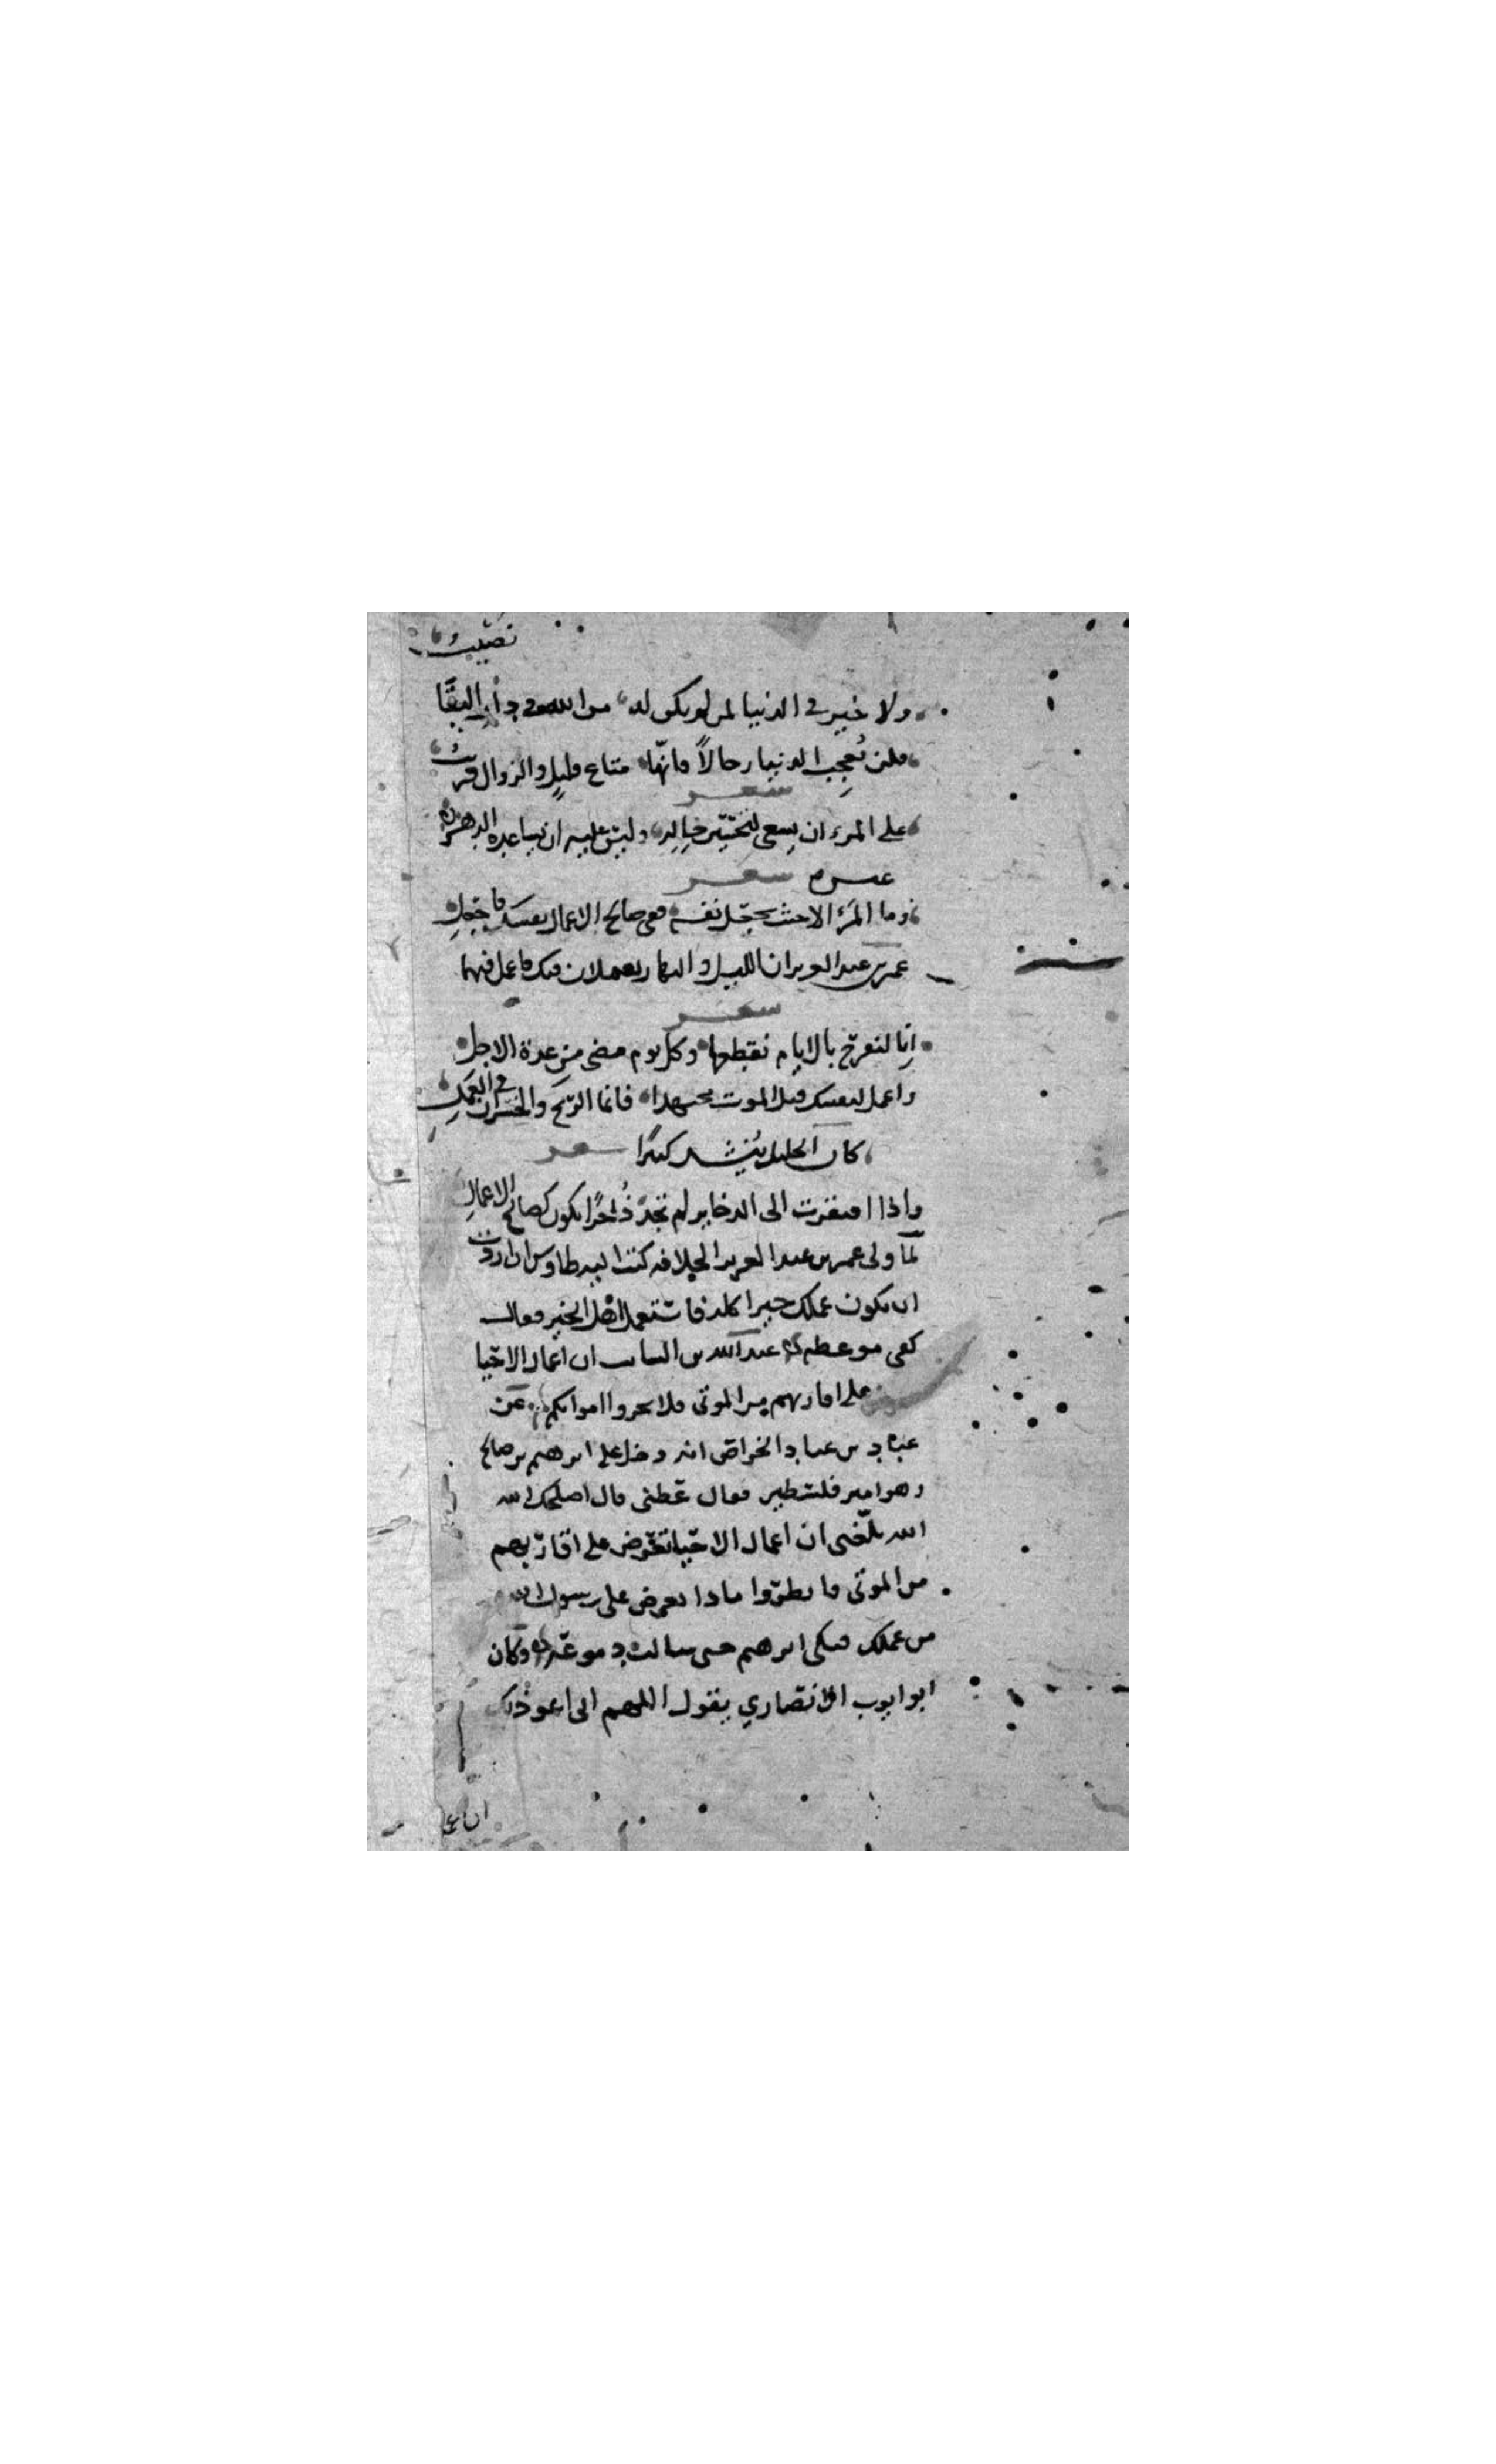 نصيب
ولا خير في الدنيا لمن لم يكن له من الله في دار البقا
فلن تعجب الدنيا رجالا فانها متاع قليل والزوال قريب
شعر
على المرء ان يسعى لتحسين حاله وليس عليه ان يساعده الدهر
غيره شعر
وما المرء الا حيث يجعل نفسه ففي صالح الاعمال نفسك فاجعل
عمر بن عبد العزيز ان الليل والنهار يعملان فيك فاعمل فيهما
شعر
انا لنفرح بالايام نقطعها وكل يوم مضى من عدة الاجل
واعمل لنفسك قبل الموت مجتهدا فانما الربح والخسران في العمل
كان الخليل ينشد كثيرا شعر
واذا افتقرت الى الذخاير لم تجد ذخرا يكون كصالح الاعمال
لما ولى عمر بن عبد العزيز الخلافه كتب اليه طاوس ان اردت
ان يكون عملك خيرا كله فاستعمل اهل الخير فقال
كفى موعظه عبد الله بن السايب ان اعمال الاحيا
على اقاربهم من الموتى فلا تخزوا امواتكم عن
عباد بن عباد الخواص انه دخل على ابرهيم بن صالح
وهو امير فلسطين فقال عظني قال اصلحك الله
الله بلغني ان اعمال الاحيا تعرض على اقاربهم
من الموتى فانظروا ماذا يعرض على رسول الله
من عملك فبكى ابرهيم حتى سالت دموعه وكان
ابو ايوب الانصاري يقول اللهم انى اعوذ بك
ان